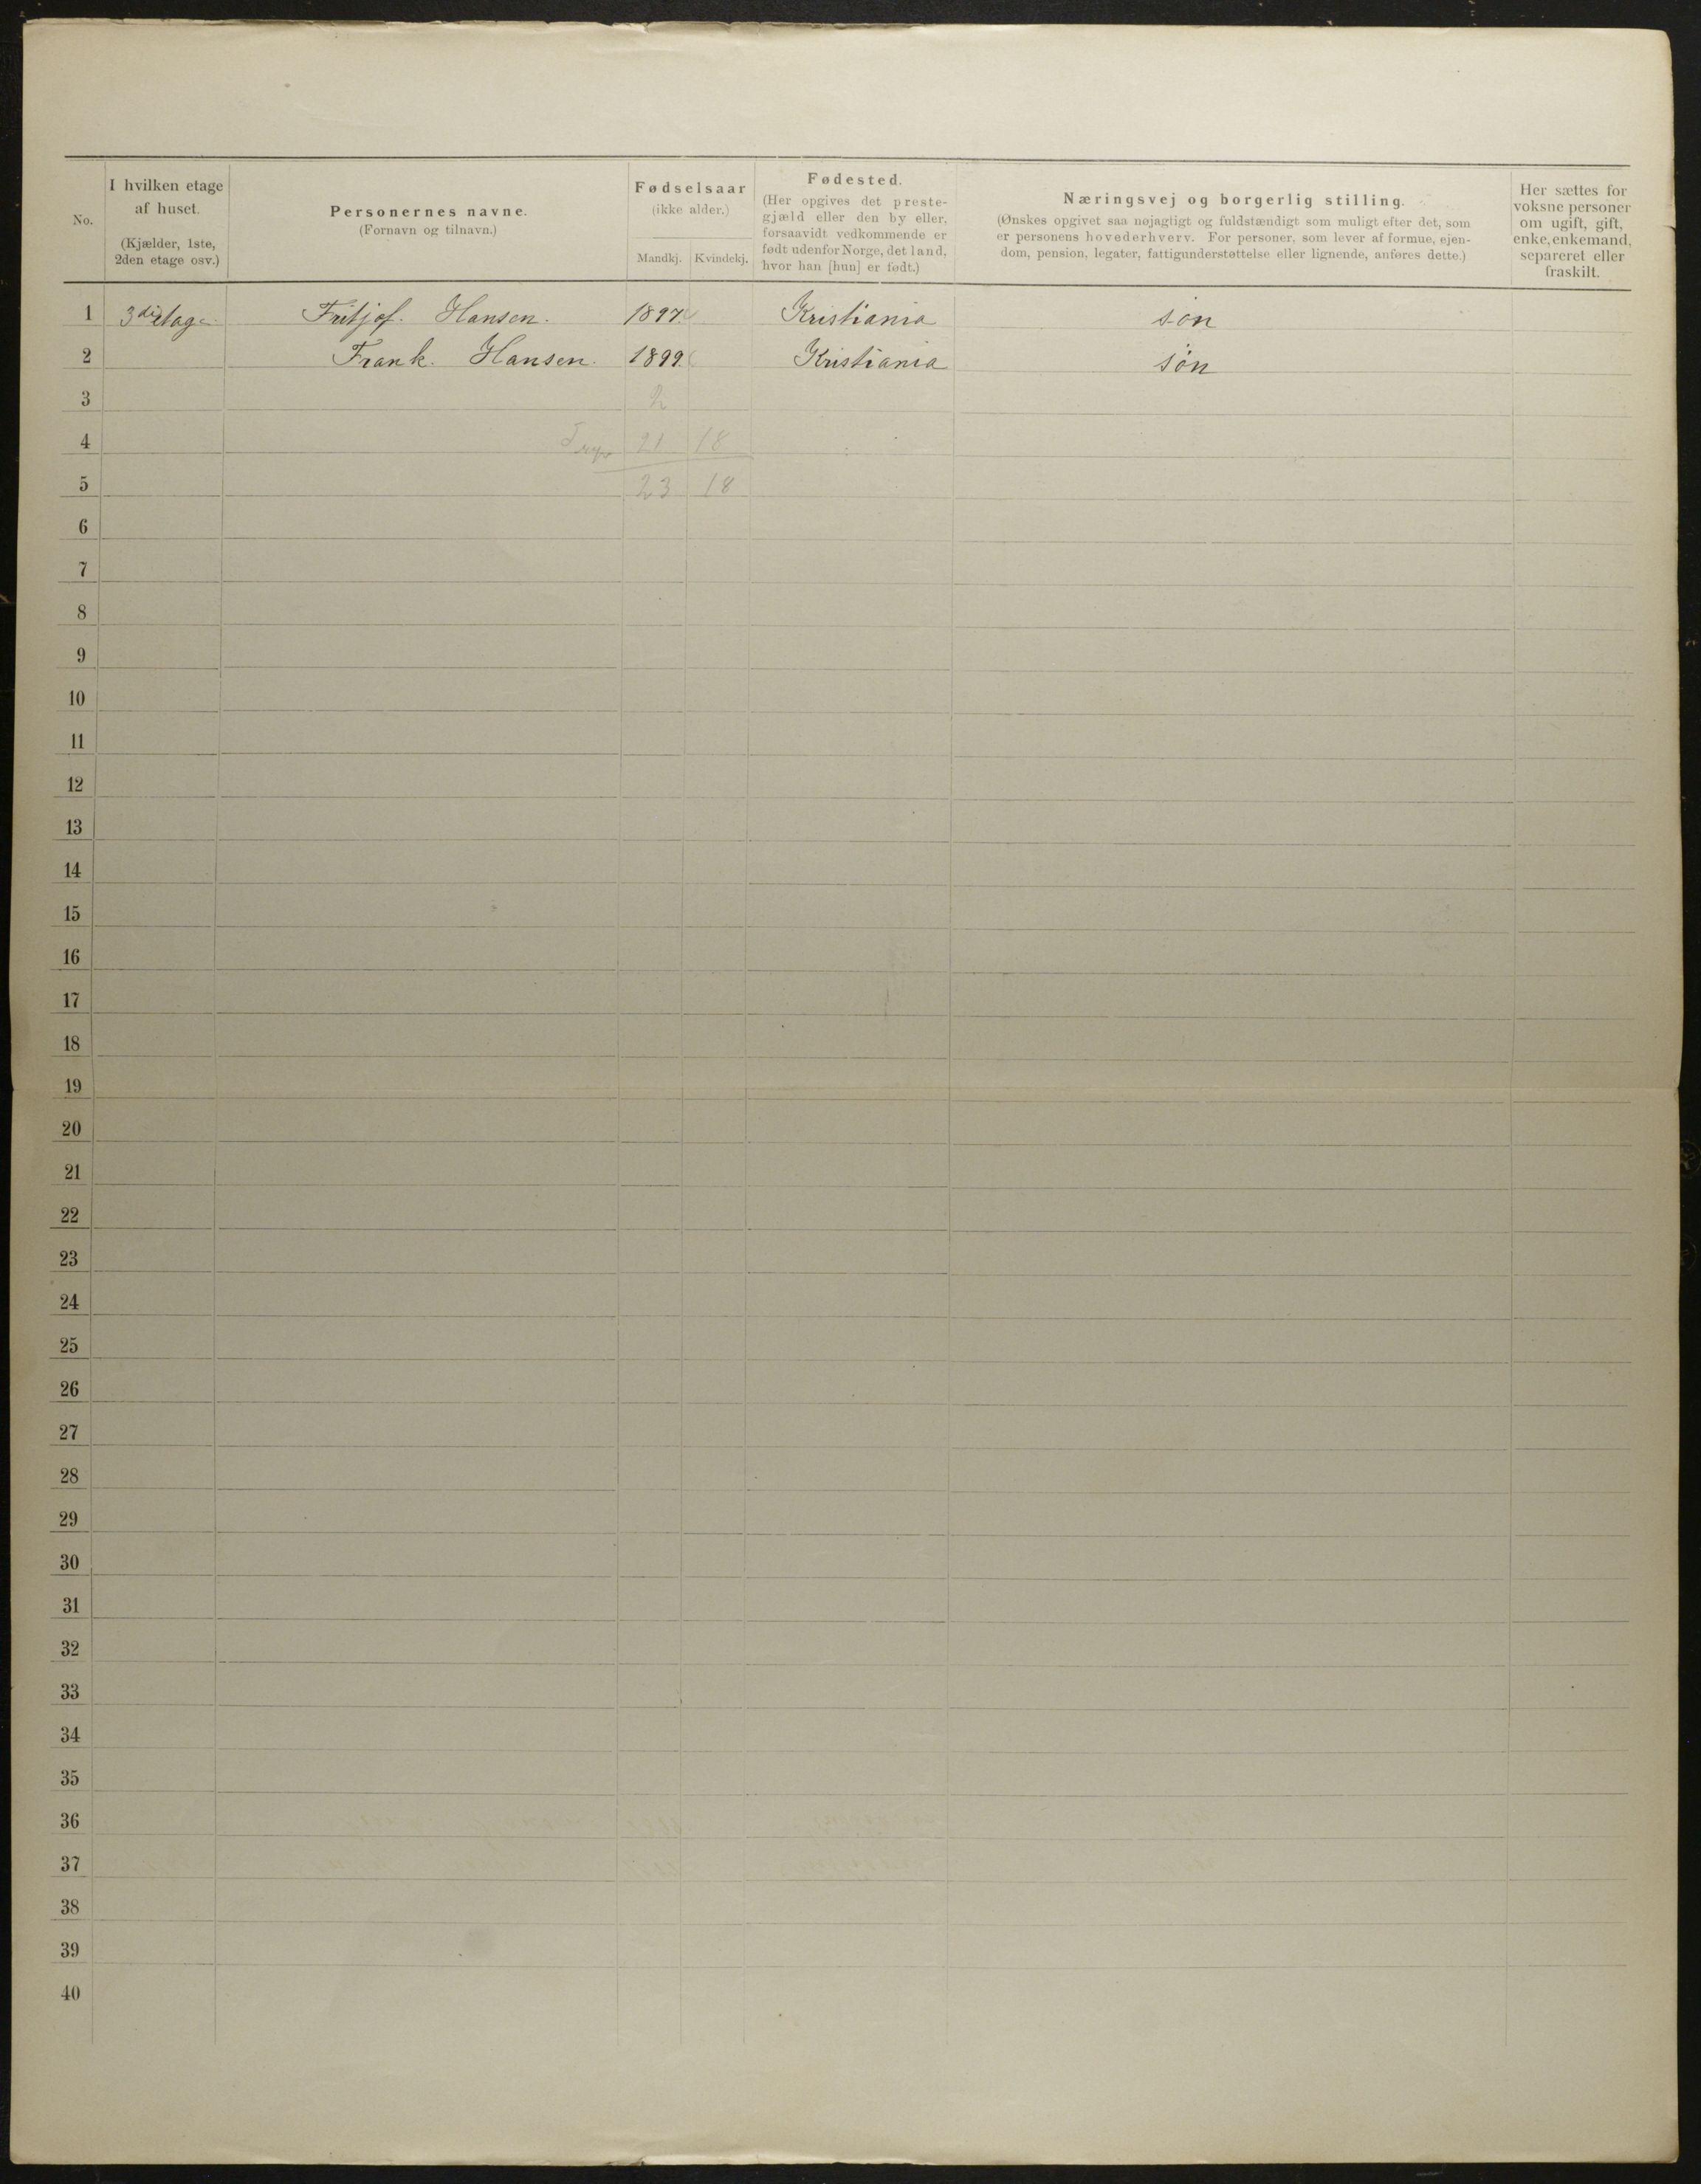 No.
I hvilken etage
af huset.
(Kjælder, 1ste,
2den etage osv.)
Personernes navne.
(Fornavn og tilnavn.)
Fødselsaar
(ikke alder.)
Mandkj. Kvindekj.
Fødested.
(Her opgives det preste-
gjæld eller den by eller,
forsaavidt vedkommende er
født udenfor Norge, det land,
hvor han [hun] er født.)
Næringsvej og borgerlig stilling.
(Ønskes opgivet saa nøjagtigt og fuldstændigt som muligt efter det, som
er personens hovederhverv. For personer, som lever af formue, ejen-
dom, pension, legater, fattigunderstøttelse eller lignende, anføres dette.)
Her sættes for
voksne personer
om ugift, gift,
enke, enkemand,
separeret eller
fraskilt.
1 3die etage Fritjof. Hansen. 1897. Kristiania søn
2 Frank. Hansen. 1899. Kristiania søn
3 2
4 21 18
5 23 18
6
7
8
9
10
11
12
13
14
15
16
17
18
19
20
21
22
23
24
25
26
27
28
29
30
31
32
33
34
35
36
37
38
39
40